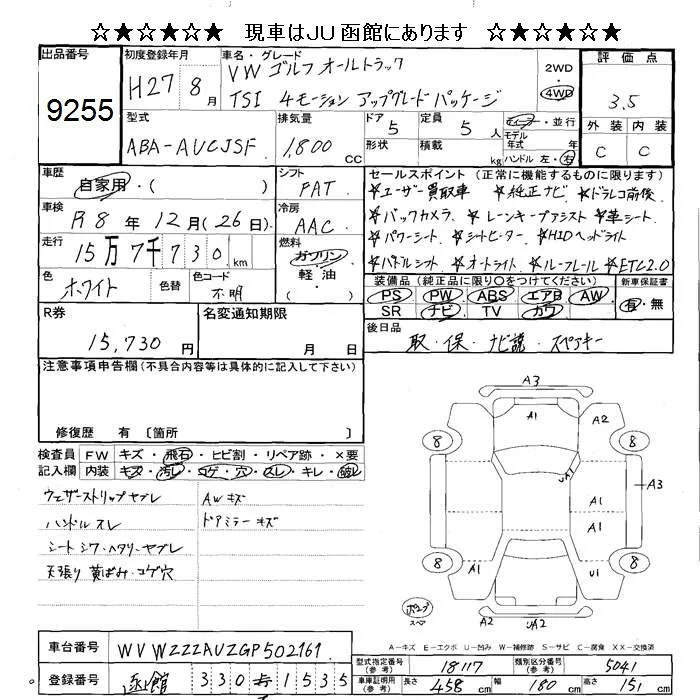 ☆★☆★☆ 現車はJU函館にあります ☆★☆★☆
出品番号 9255
初度登録年月 H27 8月
車名・グレード VW ゴルフ オールトラック
TSI 4モーション アップグレード パッケージ
2WD 4WD
評価点 3.5
外装 内装
C C
型式 ABA-AUCJSF
排気量 1,800 CC
ドア 5 形状
定員 5人 積載 kg
ディーラー・並行
モデル年式 年
ハンドル 左・右
車歴 自家用・( )
シフト FAT
車検 R8年12月(26日)
冷房 AAC
走行 15万7千730km
燃料 ガソリン 軽油 ( )
色 ホワイト 色替
色コード 不明
セールスポイント (正常に機能するものに限ります)
☆ユーザー買取車 ☆純正ナビ ☆ドラレコ前後
☆バックカメラ ☆レーンキープアシスト ☆革シート
☆パワーシート ☆シートヒーター ☆HIDヘッドライト
☆パドルシフト ☆オートライト ☆ルーフレール ☆ETC2.0
装備品 (純正品に限り○をつけてください)
PS PW ABS エアB AW
SR ナビ TV カワ
新車保証書 有・無
R券 15,730円
名変通知期限 月 日
後日品 取・保・ナビ説・スペアキー
注意事項申告欄(不具合内容等は具体的に記入して下さい)
修復歴 有 〔箇所 〕
検査員記入欄 FW キズ・飛石・ヒビ割・リペア跡・×要
内装 キズ・汚レ・コゲ・穴・スレ・キレ・破レ
ウェザーストリップヤブレ AWキズ
ハンドルスレ ドアミラーキズ
シート シワ・ヘタリ・ヤブレ
天張り 黄ばみ・コゲ穴
A3
A1 A2
8 8
UA1
A1 A3
A1
8 8
A1 U1
A2 A2
スペア
A-キズ E-エクボ U-凹み W-補修跡 S-サビ C-腐食 XX-交換済
車台番号 WVWZZZAUZGP502161
登録番号 函館 330 1535
型式指定番号(参考) 18117
類別区分番号(参考) 5041
車庫証明用(参考) 長さ 458cm 幅 180cm 高さ 151cm